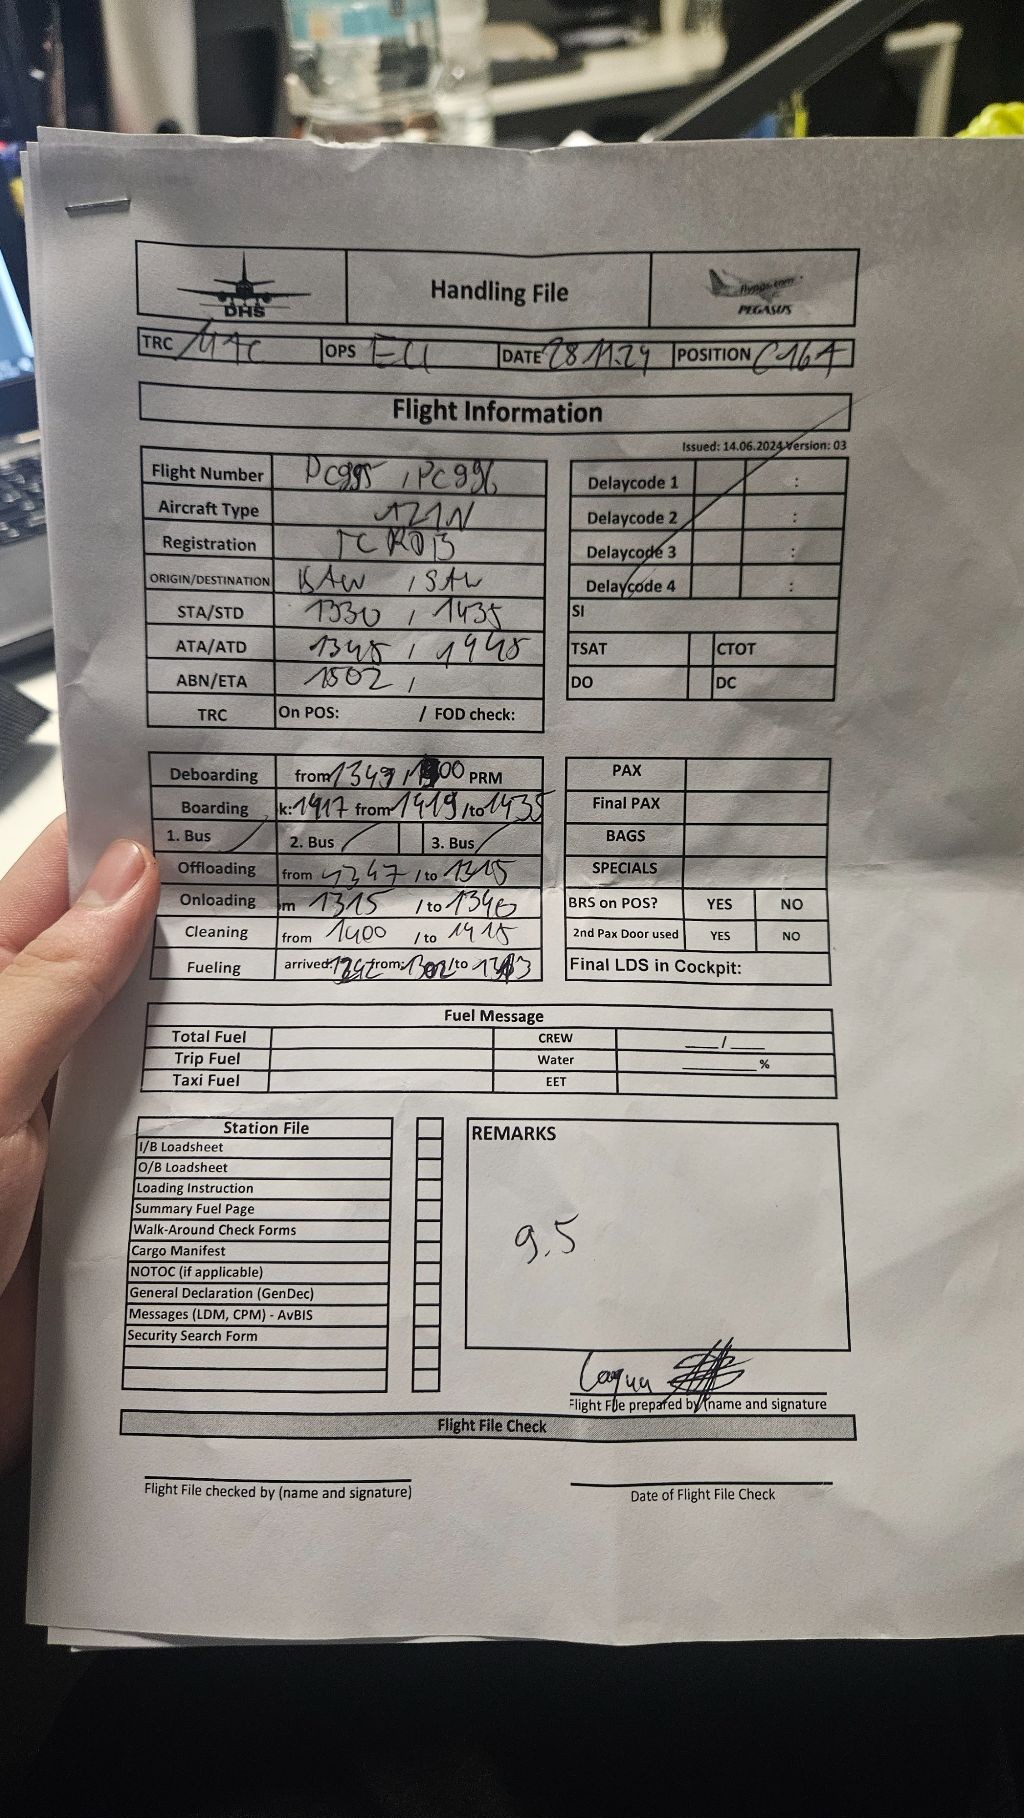 DHS
Handling File
flypgs.com
PEGASUS
TRC
OPS
DATE 28.11.24
POSITION C16A
Flight Information
Issued: 14.06.2024 Version: 03
Flight Number PC995 / PC996
Aircraft Type
Registration TC RDB
ORIGIN/DESTINATION SAW / SAW
STA/STD 1330 / 1435
ATA/ATD 1345 / 1445
ABN/ETA 1502 /
TRC On POS: / FOD check:
Delaycode 1 :
Delaycode 2 :
Delaycode 3 :
Delaycode 4 :
SI
TSAT CTOT
DO DC
Deboarding from 1349 / PRM
Boarding k: 1417 from 1419 /to 1435
1. Bus 2. Bus 3. Bus
Offloading from 1347 / to 1315
Onloading m 1315 / to 1340
Cleaning from 1400 / to 1415
Fueling arrived: from: 1302 /to
PAX
Final PAX
BAGS
SPECIALS
BRS on POS? YES NO
2nd Pax Door used YES NO
Final LDS in Cockpit:
Fuel Message
Total Fuel CREW ___ / ___
Trip Fuel Water ______ %
Taxi Fuel EET
Station File
I/B Loadsheet
O/B Loadsheet
Loading Instruction
Summary Fuel Page
Walk-Around Check Forms
Cargo Manifest
NOTOC (if applicable)
General Declaration (GenDec)
Messages (LDM, CPM) - AvBIS
Security Search Form
REMARKS
9.5
Flight File prepared by (name and signature
Flight File Check
Flight File checked by (name and signature)
Date of Flight File Check